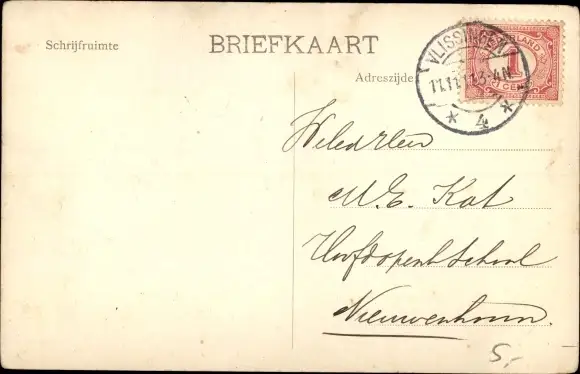 Schrijfruimte
BRIEFKAART
Adreszijde
VLISSINGEN
11.11. 3-4N
* 4 *
LAND
1
CENT
WeledHeer
M. E. Kat
Hoofd openb School
Nieuwenhoorn.
5,-